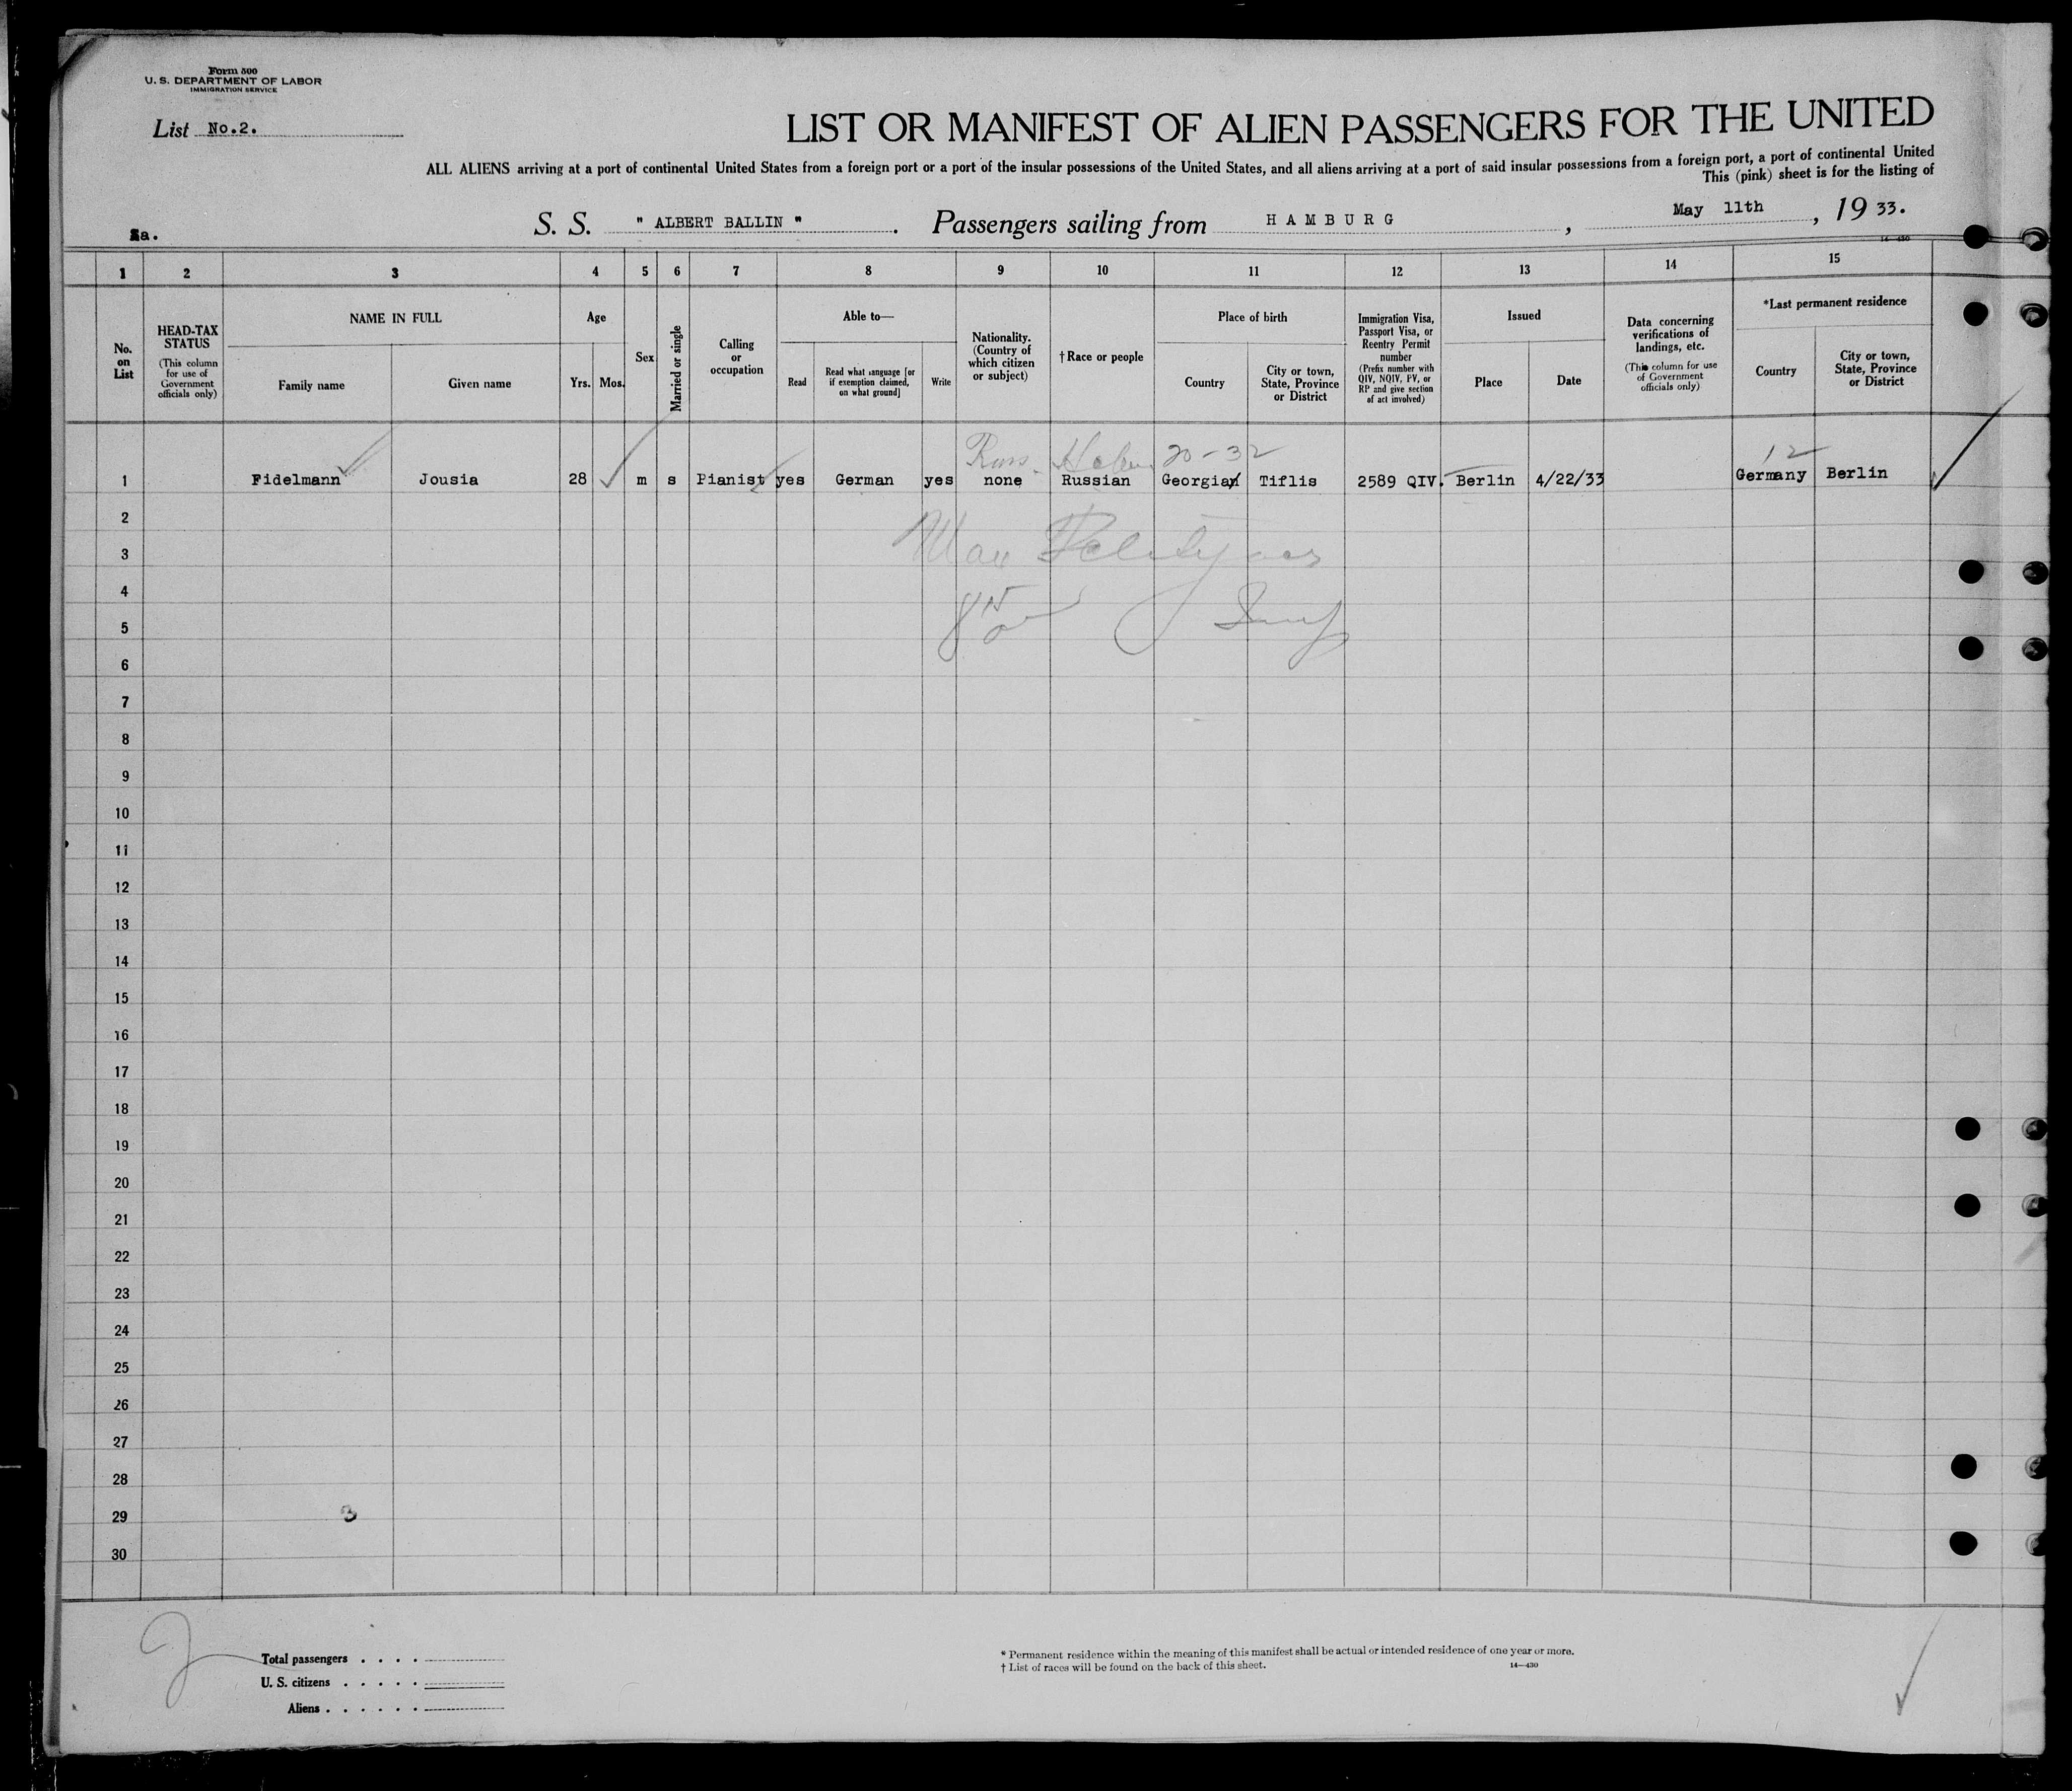 Form 500
U. S. DEPARTMENT OF LABOR
IMMIGRATION SERVICE
List No.2.
LIST OR MANIFEST OF ALIEN PASSENGERS FOR THE UNITED
ALL ALIENS arriving at a port of continental United States from a foreign port or a port of the insular possessions of the United States, and all aliens arriving at a port of said insular possessions from a foreign port, a port of continental United
This (pink) sheet is for the listing of
S. S. " ALBERT BALLIN ". Passengers sailing from HAMBURG, May 11th, 19 33.
14-430
1 2 3 4 5 6 7 8 9 10 11 12 13 14 15
No. on List
HEAD-TAX STATUS
(This column for use of Government officials only)
NAME IN FULL
Family name
Given name
Age
Yrs. Mos.
Sex
Married or single
Calling or occupation
Able to—
Read
Read what language [or if exemption claimed, on what ground]
Write
Nationality. (Country of which citizen or subject)
†Race or people
Place of birth
Country
City or town, State, Province or District
Immigration Visa, Passport Visa, or Reentry Permit number
(Prefix number with QIV, NQIV, PV, or RP and give section of act involved)
Issued
Place
Date
Data concerning verifications of landings, etc.
(This column for use of Government officials only)
*Last permanent residence
Country
City or town, State, Province or District
Russ. 20-32 12
1 Fidelmann Jousia 28 m s Pianist yes German yes none Russian Georgian Tiflis 2589 QIV. Berlin 4/22/33 Germany Berlin
2
3 Max
4
5
6
7
8
9
10
11
12
13
14
15
16
17
18
19
20
21
22
23
24
25
26
27
28
29 3
30
Total passengers . . . .
U. S. citizens . . . . .
Aliens . . . . . .
* Permanent residence within the meaning of this manifest shall be actual or intended residence of one year or more.
† List of races will be found on the back of this sheet.
14—430